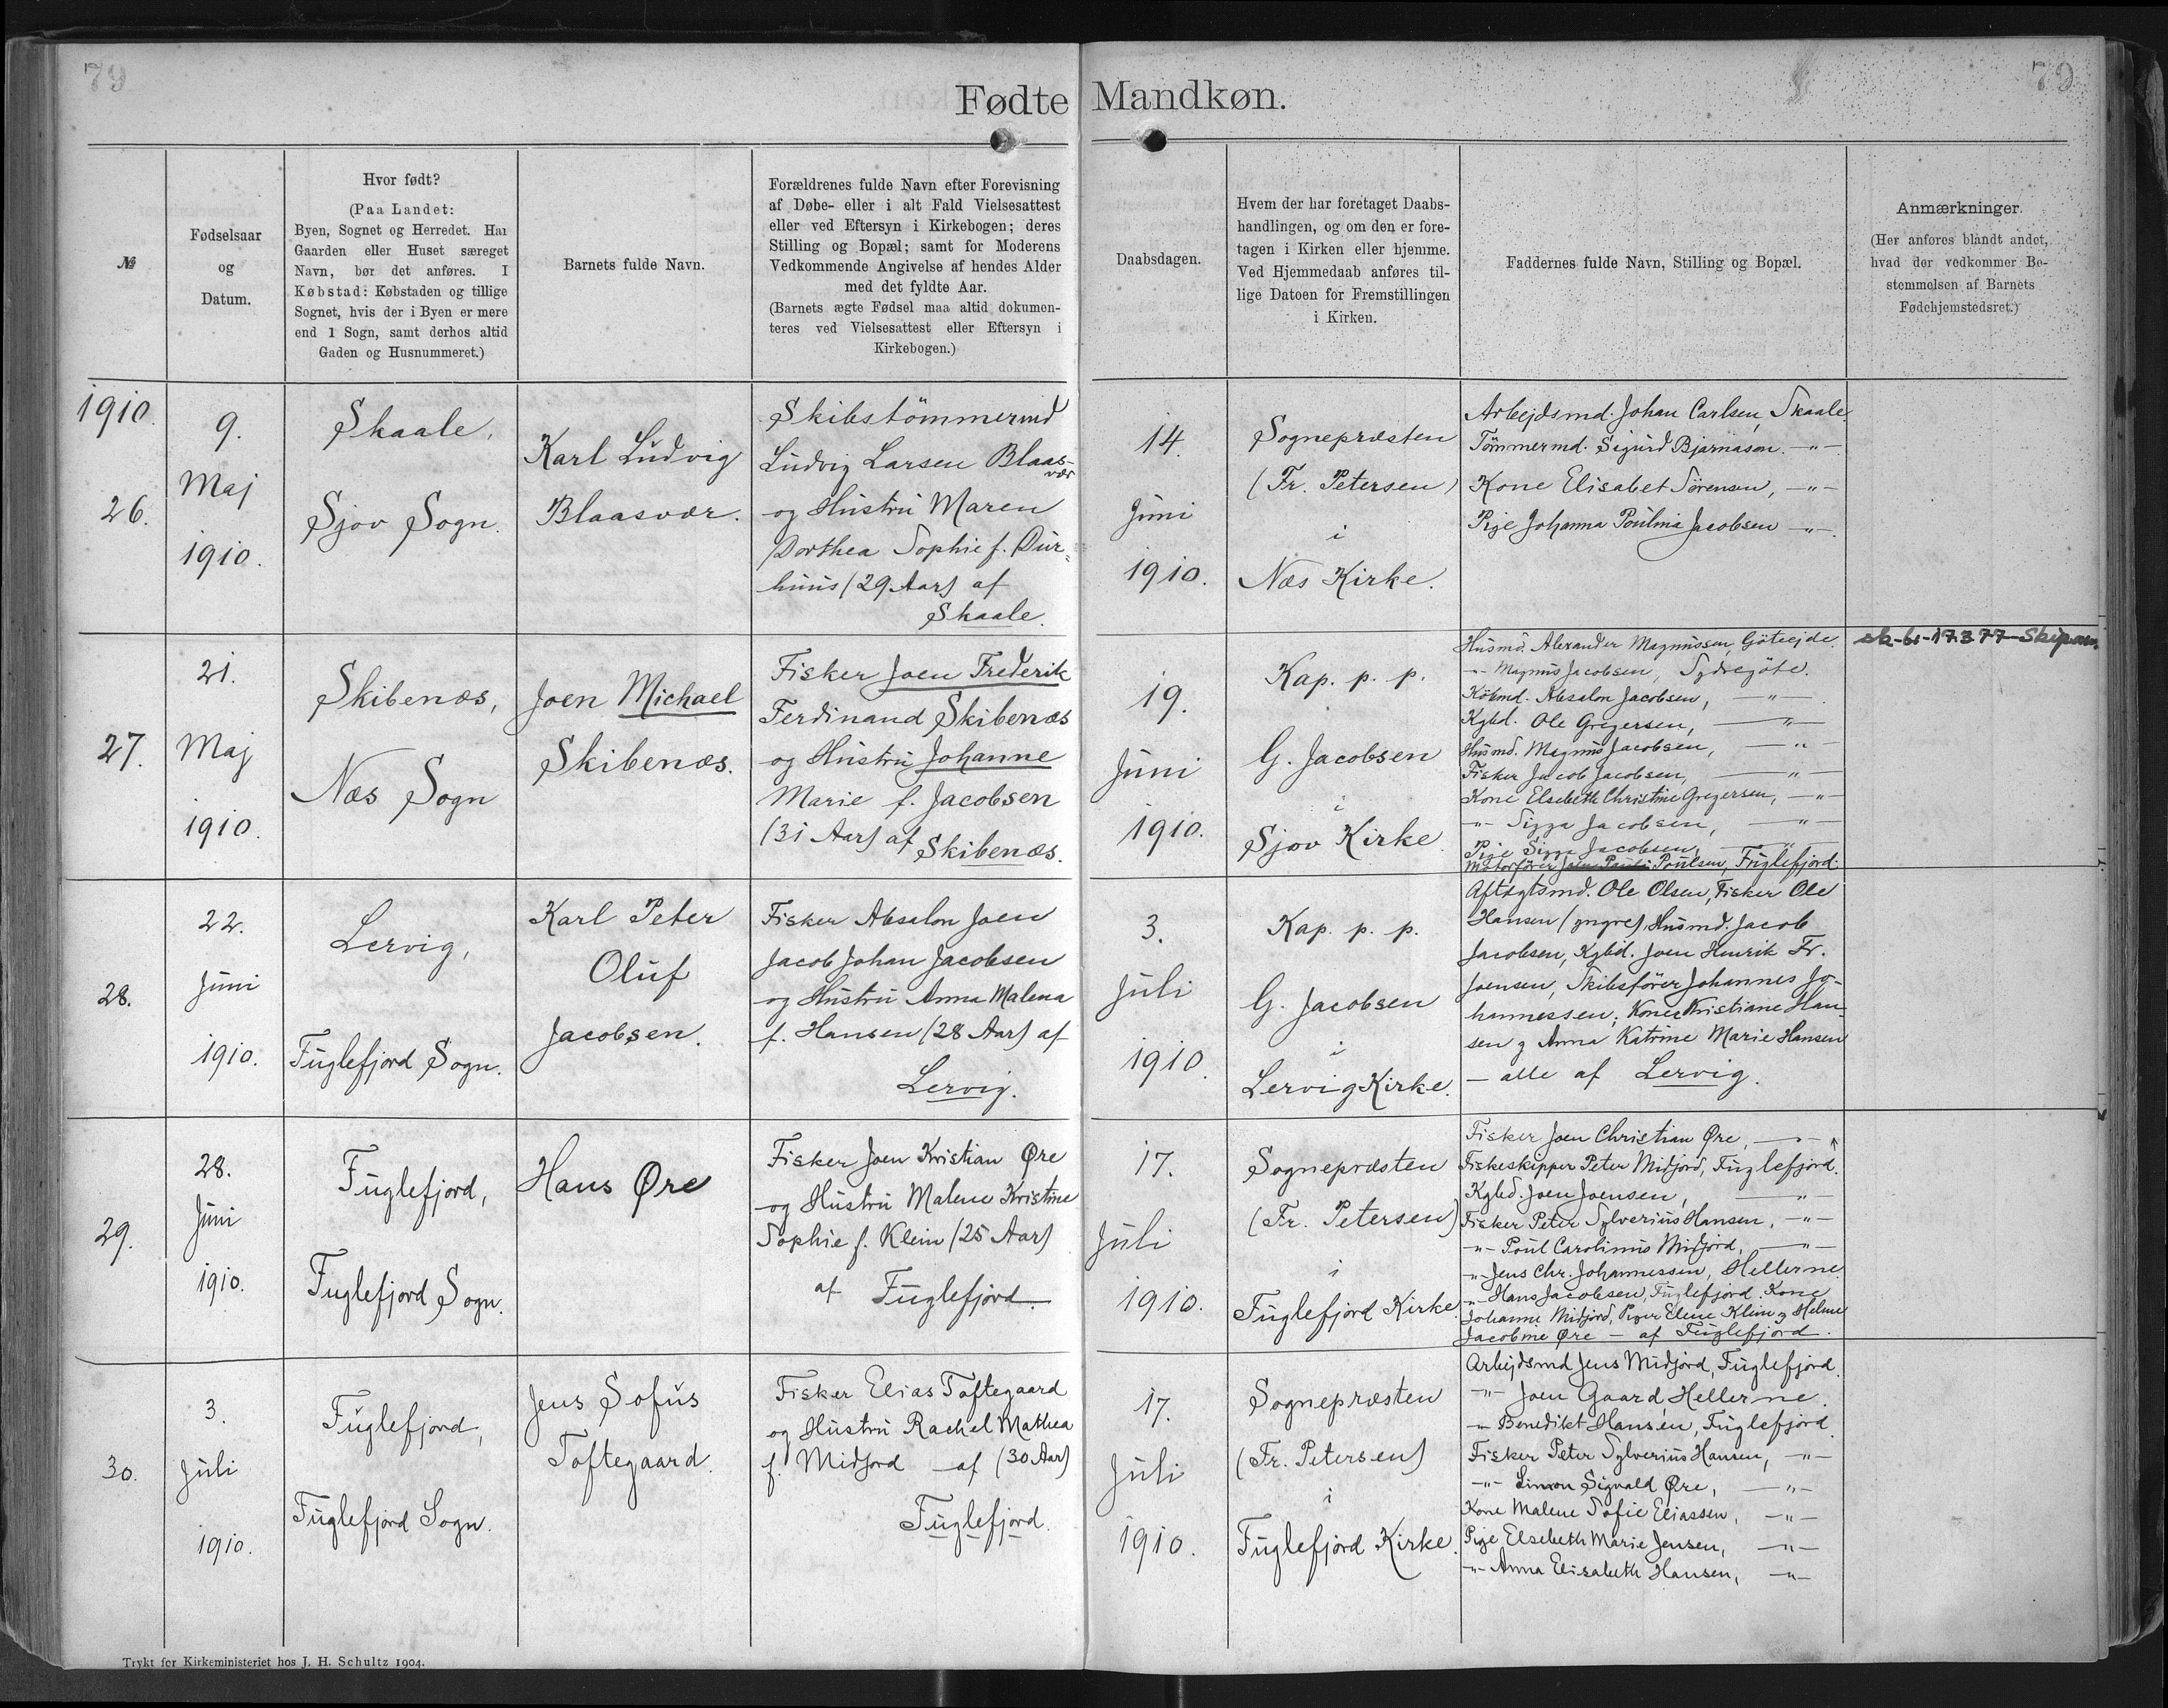 79
79
Fødte Mandkøn.
№
Fødselsaar
og
Datum.
Hvor født?
(Paa Landet:
Byen, Sognet og Herredet. Har
Gaarden eller Huset særeget
Navn, bør det anføres. I
Købstad: Købstaden og tillige
Sognet, hvis der i Byen er mere
end 1 Sogn, samt derhos altid
Gaden og Husnummeret.)
Barnets fulde Navn.
Forældrenes fulde Navn efter Forevisning
af Døbe- eller i alt Fald Vielsesattest
eller ved Eftersyn i Kirkebogen; deres
Stilling og Bopæl; samt for Moderens
Vedkommende Angivelse af hendes Alder
med det fyldte Aar.
(Barnets ægte Fødsel maa altid dokumen-
teres ved Vielsesattest eller Eftersyn i
Kirkebogen.)
Daabsdagen.
Hvem der har foretaget Daabs-
handlingen, og om den er fore-
tagen i Kirken eller hjemme.
Ved Hjemmedaab anføres til-
lige Datoen for Fremstillingen
i Kirken.
Faddernes fulde Navn, Stilling og Bopæl.
Anmærkninger.
(Her anføres blandt andet,
hvad der vedkommer Be-
stemmelsen af Barnets
Fødehjemstedsret.)
1910.
26.
9.
Maj
1910.
Skaale,
Sjov Sogn.
Karl Ludvig
Blaasvær.
Skibstömmermd
Ludvig Larsen Blaas-
vær
og Hustru Maren
Dorthea Sophie f. Dur-
huus (29 Aar) af
Skaale.
14.
Juni
1910.
Sognepræsten
(Fr. Petersen)
i
Næs Kirke.
Arbejdsmd. Johan Carlsen, Skaale.
Tömmermd. Sigurd Bjarnason. -"-
Kone Elisabet Sörensen, -"-
Pige Johanna Poulina Jacobsen -"-.
27.
21.
Maj
1910.
Skibenæs,
Næs Sogn
Joen Michael
Skibenæs.
Fisker Joen Frederik
Ferdinand Skibenæs
og Hustru Johanne
Marie f. Jacobsen
(31 Aar) af Skibenæs.
19.
Juni
1910.
Kap. p. p.
G. Jacobsen
i
Sjov Kirke
Husmd. Alexander Magnussen, Göteejde.
-"- Magnus Jacobsen, Sydregöte.
Köbmd. Absalon Jacobsen, -"-
Kgbd. Ole Gregersen, -"-
Husmd. Magnus Jacobsen, -"-
Fisker Jacob Jacobsen, -"-
Kone Elsebeth Christine Gregersen, -"-
-"- Sigga Jacobsen, -"-
Pige Sigga Jacobsen, -"-
Motorförer Joen Pauli Poulsen, Fuglefjord.
28.
22.
Juni
1910.
Lervig,
Fuglefjord Sogn.
Karl Peter
Oluf
Jacobsen.
Fisker Absalon Joen
Jacob Johan Jacobsen
og Hustru Anna Malena
f. Hansen (28 Aar) af
Lervig.
3.
Juli
1910.
Kap. p. p.
G. Jacobsen
i
Lervig Kirke.
Aftægtsmd. Ole Olsen, Fisker Ole
Hansen (yngre), Husmd. Jacob
Jacobsen, Kgbd. Joen Henrik Fr.
Joensen, Skibsförer Johannes Jo-
hannessen, Koner Kristiane Han-
sen og Anna Katrine Marie Hansen
— alle af Lervig.
29.
28.
Juni
1910.
Fuglefjord,
Fuglefjord Sogn.
Hans Øre
Fisker Joen Kristian Øre
og Hustru Malene Kristine
Sophie f. Klein (25 Aar)
af Fuglefjord.
17.
Juli
1910.
Sognepræsten
(Fr. Petersen)
i
Fuglefjord Kirke.
Fisker Joen Christian Øre, -"-
Fiskeskipper Peter Midjord, Fuglefjord.
Kgbd. Joen Joensen, -"-
Fisker Peter Sylverius Hansen, -"-
-"- Poul Carolinus Midjord, -"-
-"- Jens Chr. Johannessen, Hellerne.
-"- Hans Jacobsen, Fuglefjord. Kone
Johanne Midjord, Piger Elene Klein og Helene
Jacobine Øre — af Fuglefjord.
30.
3.
Juli
1910.
Fuglefjord,
Fuglefjord Sogn.
Jens Sofus
Toftegaard.
Fisker Elias Toftegaard
og Hustru Rachel Mathea
f. Midjord — af (30 Aar)
Fuglefjord.
17.
Juli
1910.
Sognepræsten
(Fr. Petersen)
i
Fuglefjord Kirke.
Arbejdsmd Jens Midjord, Fuglefjord.
-"- Joen Gaard, Hellerne.
-"- Benedikt Hansen, Fuglefjord.
Fisker Peter Sylverius Hansen, -"-
-"- Simon Sigvald Øre, -"-
Kone Malene Sofie Eliassen, -"-
Pige Elsebeth Marie Jensen, -"-
-"- Anna Elisabeth Hansen, -"-
Trykt for Kirkeministeriet hos J. H. Schultz 1904.